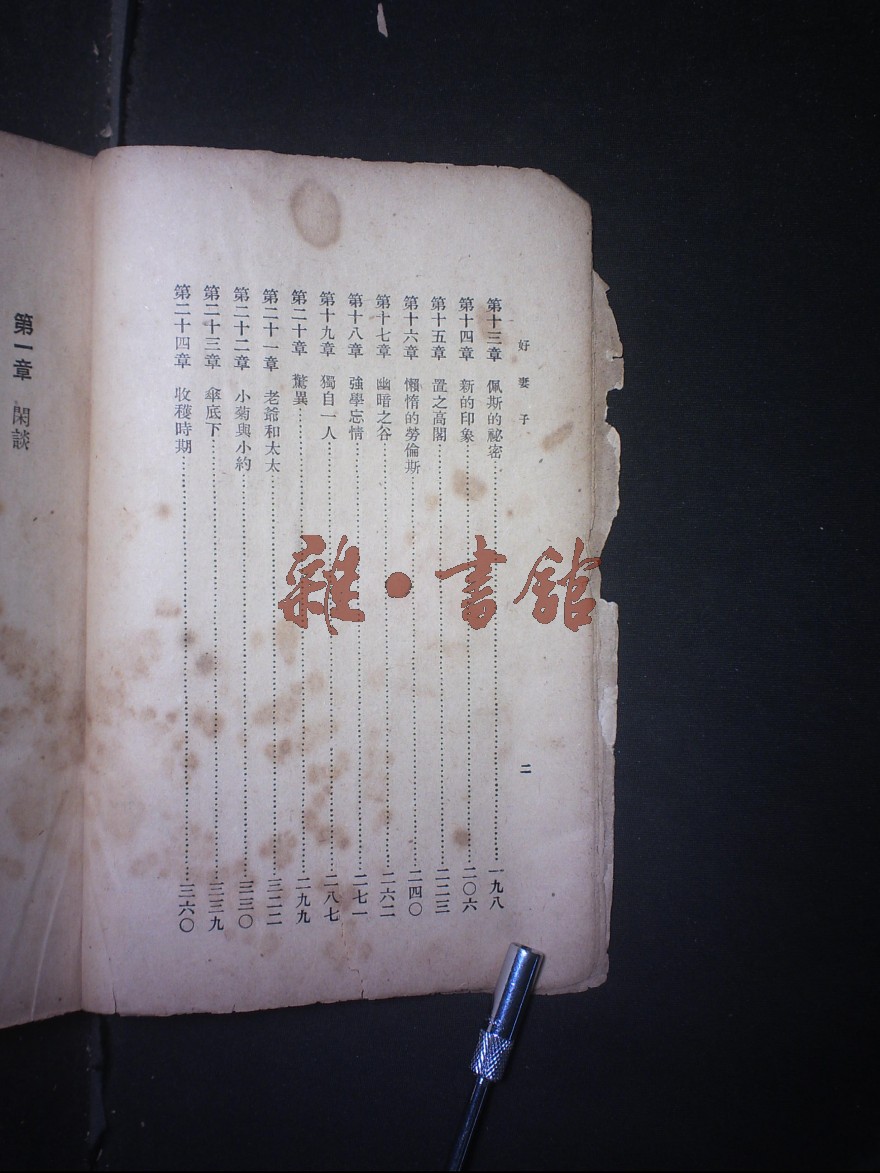 好妻子
二
第十三章 佩斯的祕密……一九八
第十四章 新的印象……二〇六
第十五章 置之高閣……二二三
第十六章 懶惰的勞倫斯……二四〇
第十七章 幽暗之谷……二六二
第十八章 強學忘情……二七一
第十九章 獨自一人……二八七
第二十章 驚異……二九九
第二十一章 老爺和太太……三二二
第二十二章 小菊與小約……三三〇
第二十三章 傘底下……三三九
第二十四章 收穫時期……三六〇
第一章 閑談
雜·書館